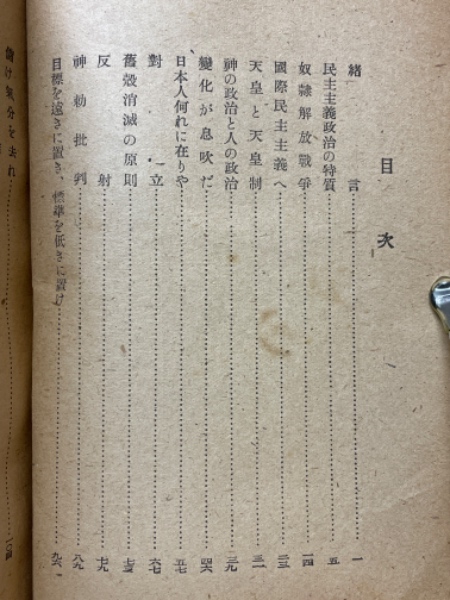 目次
緒言……一
民主主義政治の特質……五
奴隷解放戰爭……一四
國際民主主義へ……二三
天皇と天皇制……三一
神の政治と人の政治……三九
變化が息吹だ……四六
日本人何れに在りや……五七
對立……六七
舊殼消滅の原則……七三
反射……七九
神勅批判……八九
目標を遠きに置き、標準を低きに置け……九六
儲け無分を去れ……一〇四